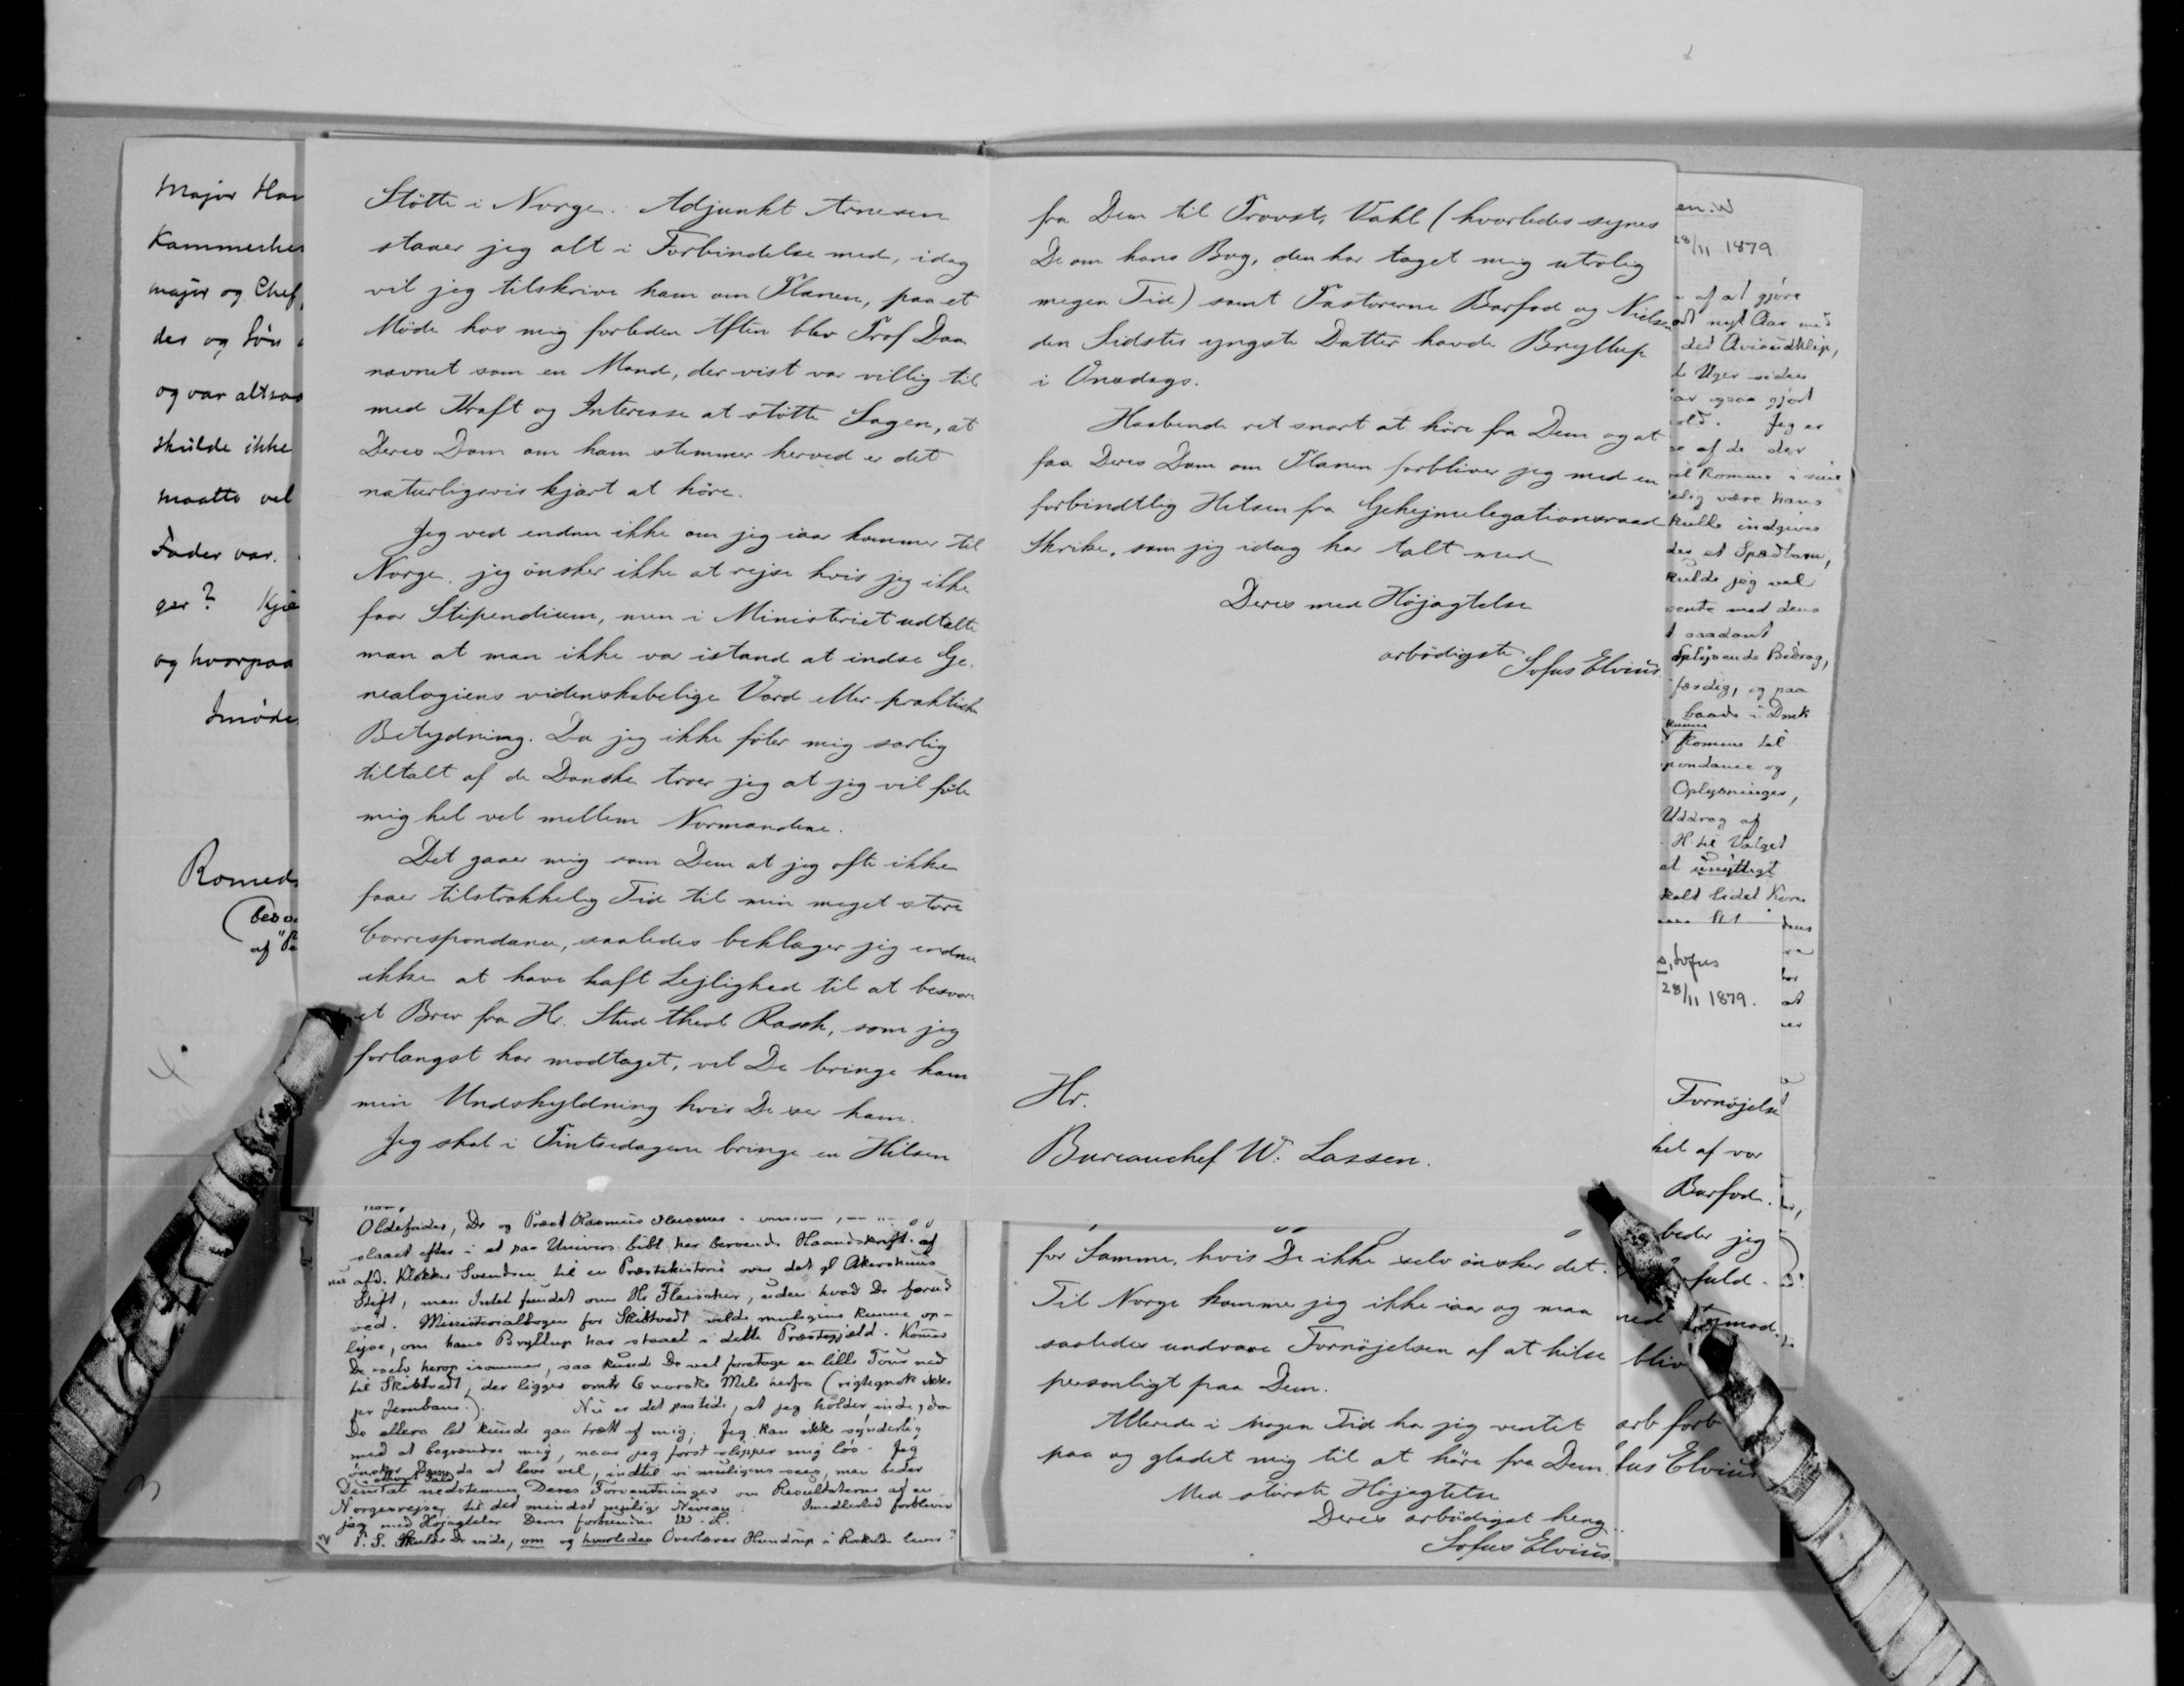 Major Han
Kammerher
major og Chef,
des og Søn
og var altsaa
skulde ikke
maatte vel
Fader var.
ger? Kjæ
og hvorpaa
Imøde
Romeds
4.
3
Støtte i Norge. Adjunkt Arnesen
staaer jeg alt i Forbindelse med, idag
vil jeg tilskrive ham om Planen, paa et
Møde hos mig forleden Aften blev Prof Daa
nævnet som en Mand, der vist var villig til
med Kraft og Interesse at støtte Sagen, at
Deres Dom om ham stemmer herved er det
naturligvis kjært at høre.
Jeg ved endnu ikke om jeg iaar kommer til
Norge, jeg ønsker ikke at rejse hvis jeg ikke
faar Stipendium, men i Ministeriet udtalte
man at man ikke var istand at indse Ge-
nealogiens videnskabelige Værd eller praktiske
Betydning. Da jeg ikke føler mig særlig
tiltalt af de Danske troer jeg at jeg vil føle
mig hel vel mellem Normændene.
Det gaaer mig som Dem at jeg ofte ikke
faaer tilstrækkelig Tid til min meget store
Correspondance, saaledes beklager jeg endnu
ikke at have haft Lejlighed til at besvare
et Brev fra Hr. Stud theol Rasch, som jeg
forlængst har modtaget, vil De bringe ham
min Undskyldning hvis De ser ham.
Jeg skal i Pintsedagene bringe en Hilsen
fra Dem til Provst Vahl (hvorledes synes
De om hans Bog, den har taget mig utrolig
megen Tid) samt Pastorerne Barfod og Nielsen
den Sidstes yngste Datter havde Bryllup
i Onsdags.
Haabende ret snart at høre fra Dem og at
faa Deres Dom om Planen forbliver jeg med en
forbindtlig Hilsen fra Gehejmelegationsraad
Skrike, som jeg idag har talt med
Deres med Højagtelse
arbödigste Sofus Elvius.
Hr.
Bureauchef W. Lassen.
Oldefader, Dr og Præst Rasmus
slaaet efter i et paa Univers. bibl. her beroende Haandskrift af
nu afd. Klokker Svendsen til en Præstehistorie over det gl Akershuus
Stift, men Intet fundet om Hr Fleischer, uden hvad De forud
ved. Ministerialbogen for Skibtvedt vilde muligens kunne op-
lyse, om hans Bryllup har staaet i dette Præstegjæld. Kommer
De selv herop isommer, saa kunde De vel foretage en lille Tour ned
til Skibtvedt, der ligger omtr 6 norske Mile herfra (rigtignok ikke
pr Jernbane.). Nu er det paatide, at jeg holder inde, da
De ellers let kunde gaa træt af mig; Jeg kan ikke synderlig
med at begrændse mig, naar jeg først slipper mig løs. Jeg
ønsker Dem da at leve vel, indtil vi muligens sees, men beder
Dem at nedstemme Deres Forventninger om Resultaterne af en
Norgesrejse til det mindst mulige Niveau. Imedlertid forbliver
jeg med Højagtelse Deres forbundne W. L.
P. S. Skulde De vide, om og hvorledes Overlærer Hundrup i Roskilde lever?
12
for Samme, hvis De ikke selv ønsker det.
Til Norge kommer jeg ikke iaar og maa
saaledes undvære Fornøjelsen af at hilse
personligt paa Dem.
Allerede i nogen Tid har jeg ventet
paa og glædet mig til at høre fra Dem.
Med største Højagtelse
Deres arbödigst heng.
Sofus Elvius.
en. W
28/11 1879
af at gjøre
odt nyt Aar med
det Avisudklip,
Uger siden
ar ogsaa gjort
old. Jeg er
af de der
vil komme i sin
elig være hans
kulde indgives
des et Spædbarn,
kulde jeg vel
vente med dens
saadant
oplysende Bidrag,
færdig, og paa
baade i Druk
kunne
komme til
pondance og
Oplysninger,
Uddrag af
H. til Valget
at unyttigt
s, Sofus
28/11 1879.
Fornøjelse
hel af vor
Barfod.
beder jeg
fuld
bliv
arb forb
fus Elvius